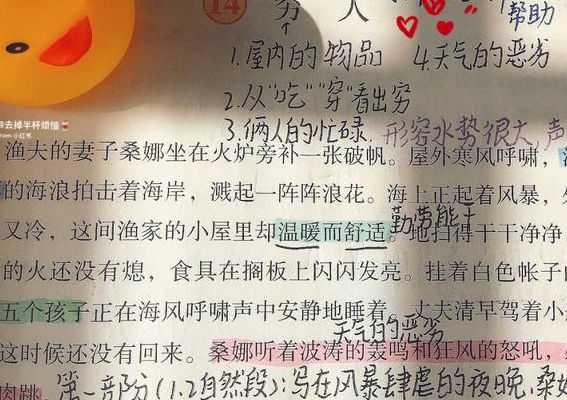 14 穷 人
帮助
1.屋内的物品 4.天气的恶劣
2.从“吃”“穿”看出穷
@去掉半杯烦恼
from 小红书
3.俩人的忙碌. 形容水势很大,声
渔夫的妻子桑娜坐在火炉旁补一张破帆。屋外寒风呼啸,
的海浪拍击着海岸,溅起一阵阵浪花。海上正起着风暴,外
勤劳能干
又冷,这间渔家的小屋里却温暖而舒适。地扫得干干净净,
的火还没有熄,食具在搁板上闪闪发亮。挂着白色帐子的
五个孩子正在海风呼啸声中安静地睡着。丈夫清早驾着小
天气的恶劣
这时候还没有回来。桑娜听着波涛的轰鸣和狂风的怒吼,
肉跳。第一部分(1.2自然段):写在风暴肆虐的夜晚,桑娜